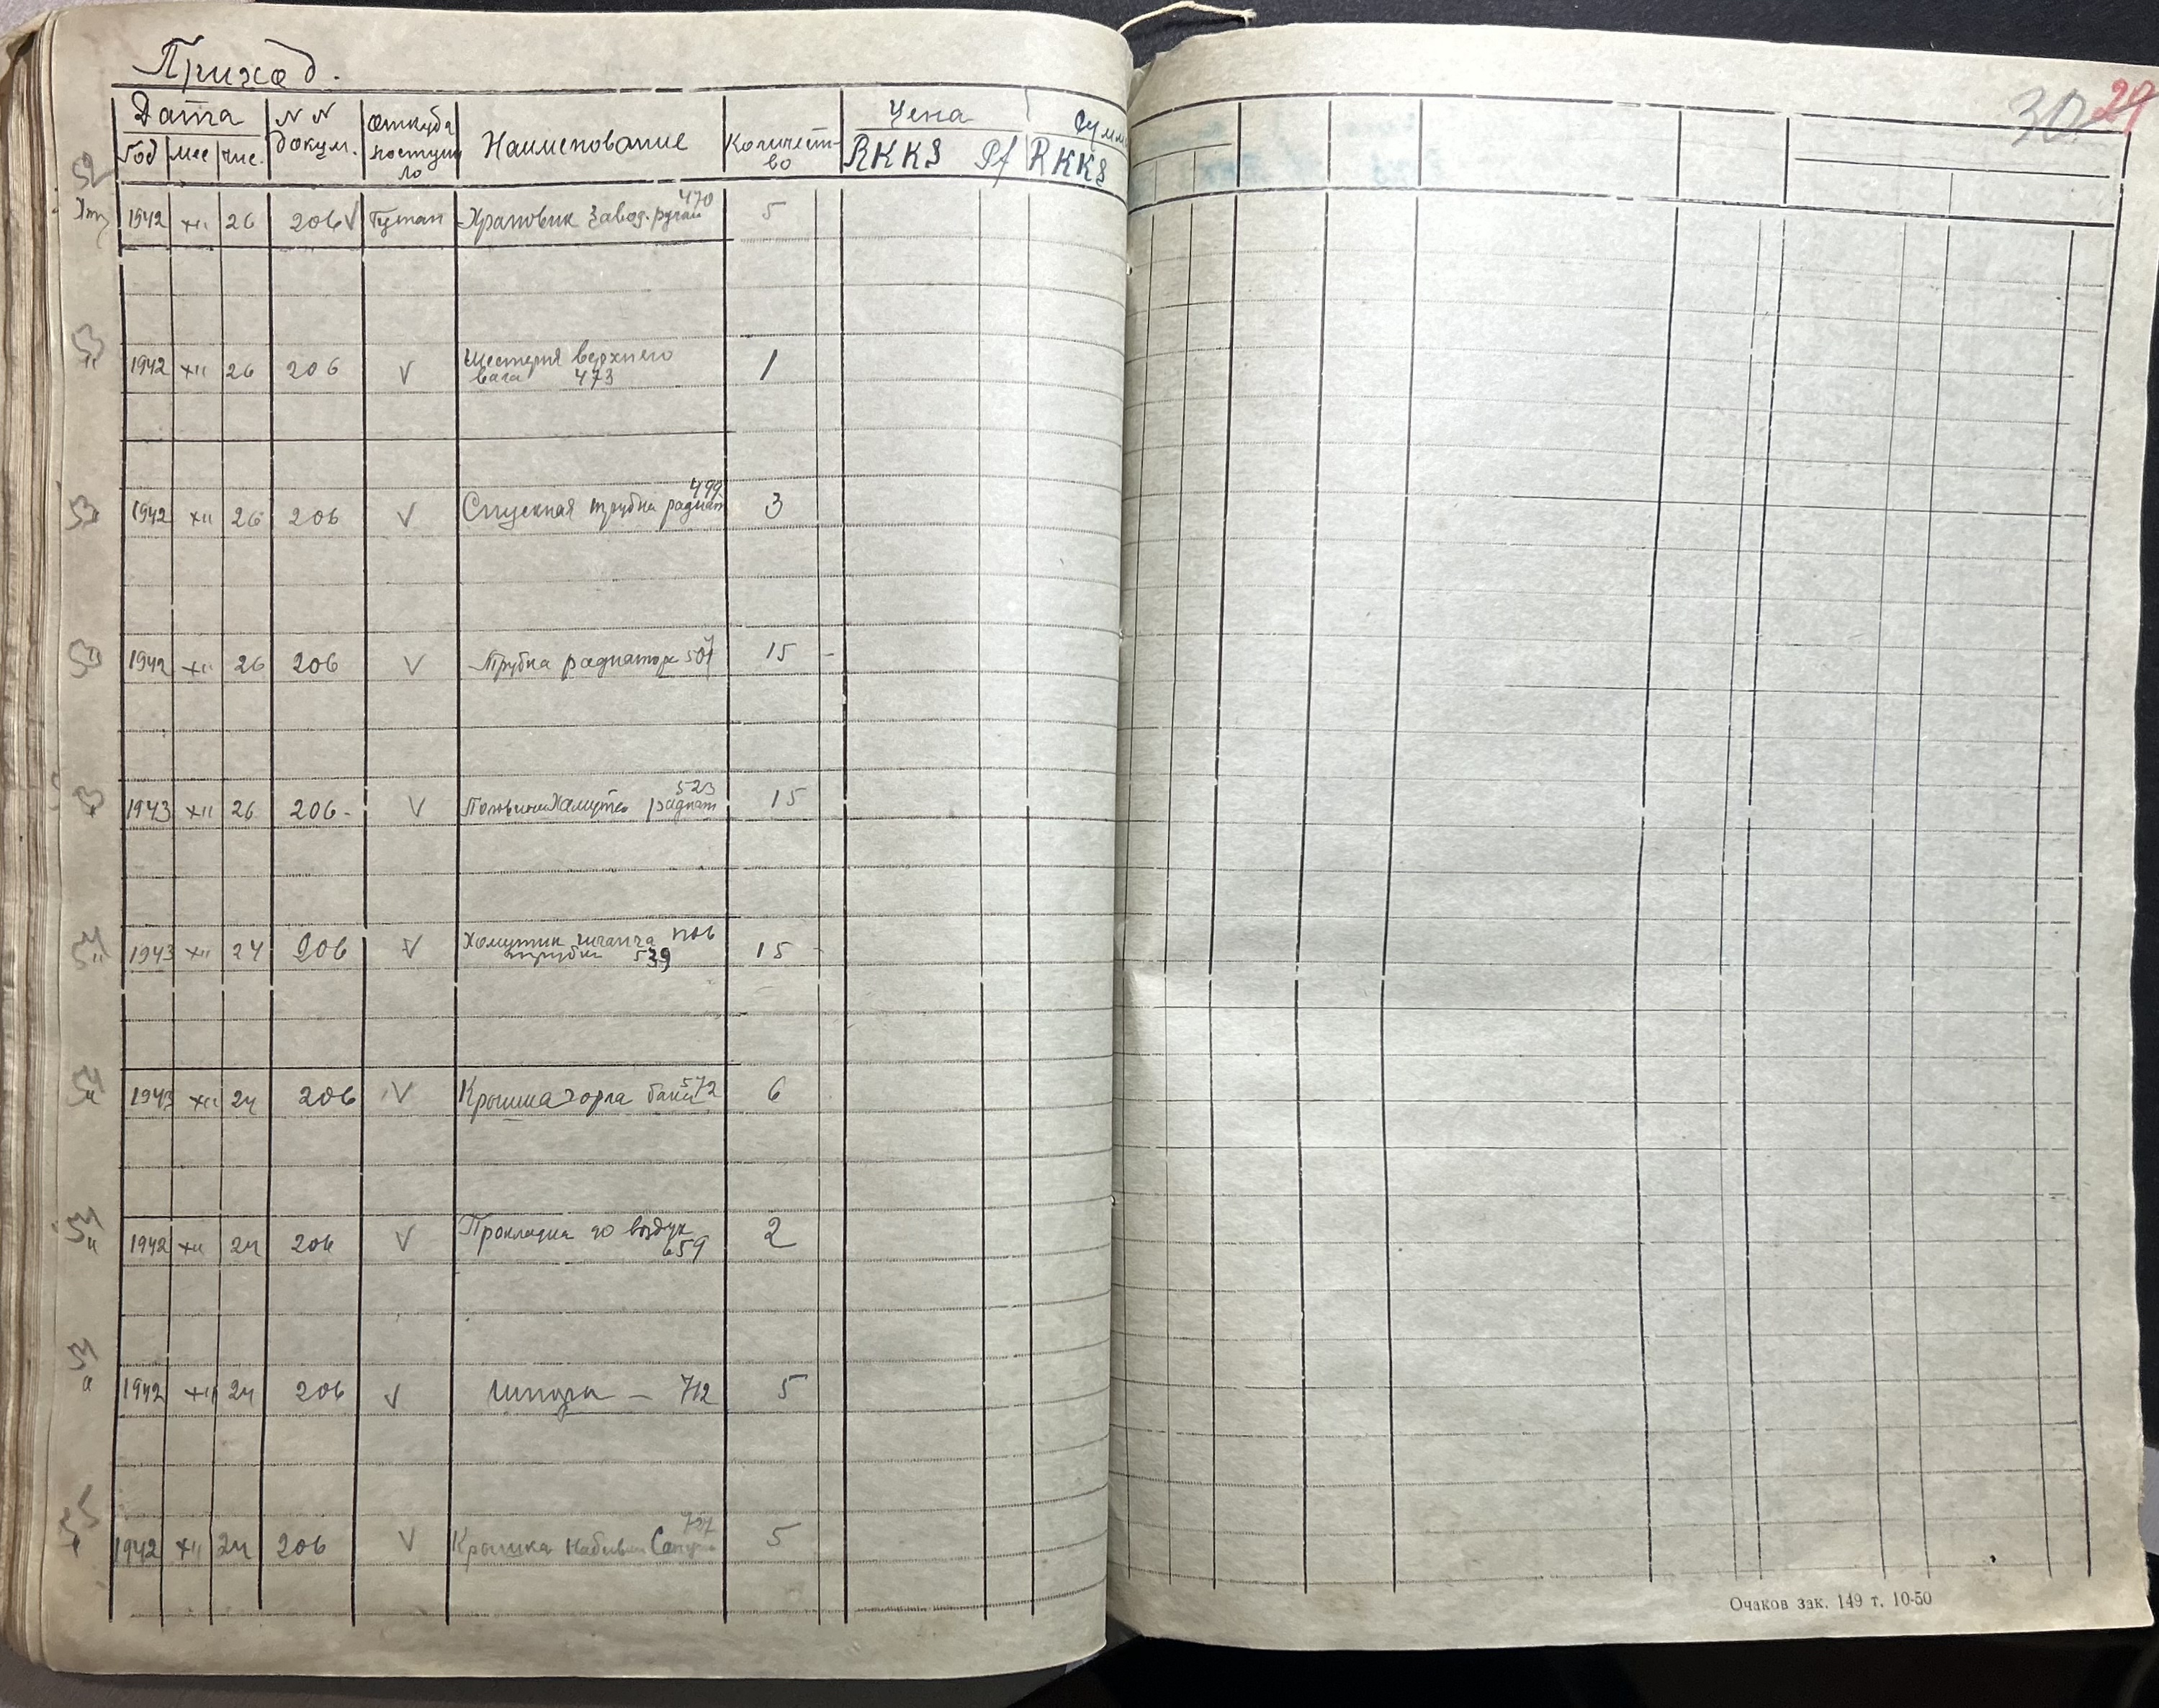 Приход.
Дата
Год мес чис.
N N докум.
Откуда поступило
Наименование
Количество
Цена
RKKS Pf
Сумм
RKKS
30 29
52
1942 XII 26 206 V Гутап Храповик завод. ручки 470 5
53
1942 XII 26 206 V Шестерня верхнего
вала 473 1
53
1942 XII 26 206 V Спускная трубка радиат 499 3
53
1942 XII 26 206 V Трубка радиатора 15 -
53
1943 XII 26 206 - V Половина Хамутка радиат 523 15
54
1943 XII 24 206 V Хомутик шланга
трубки 539 15 -
54
1943 XII 24 206 V Крышка горла бака 572 6
54
1942 XII 24 206 V Прокладка до воздух
659 2
54
1942 XII 24 206 V 712 5
55
1942 XII 24 206 V Крышка набивки 727 5
Очаков зак. 149 т. 10-50